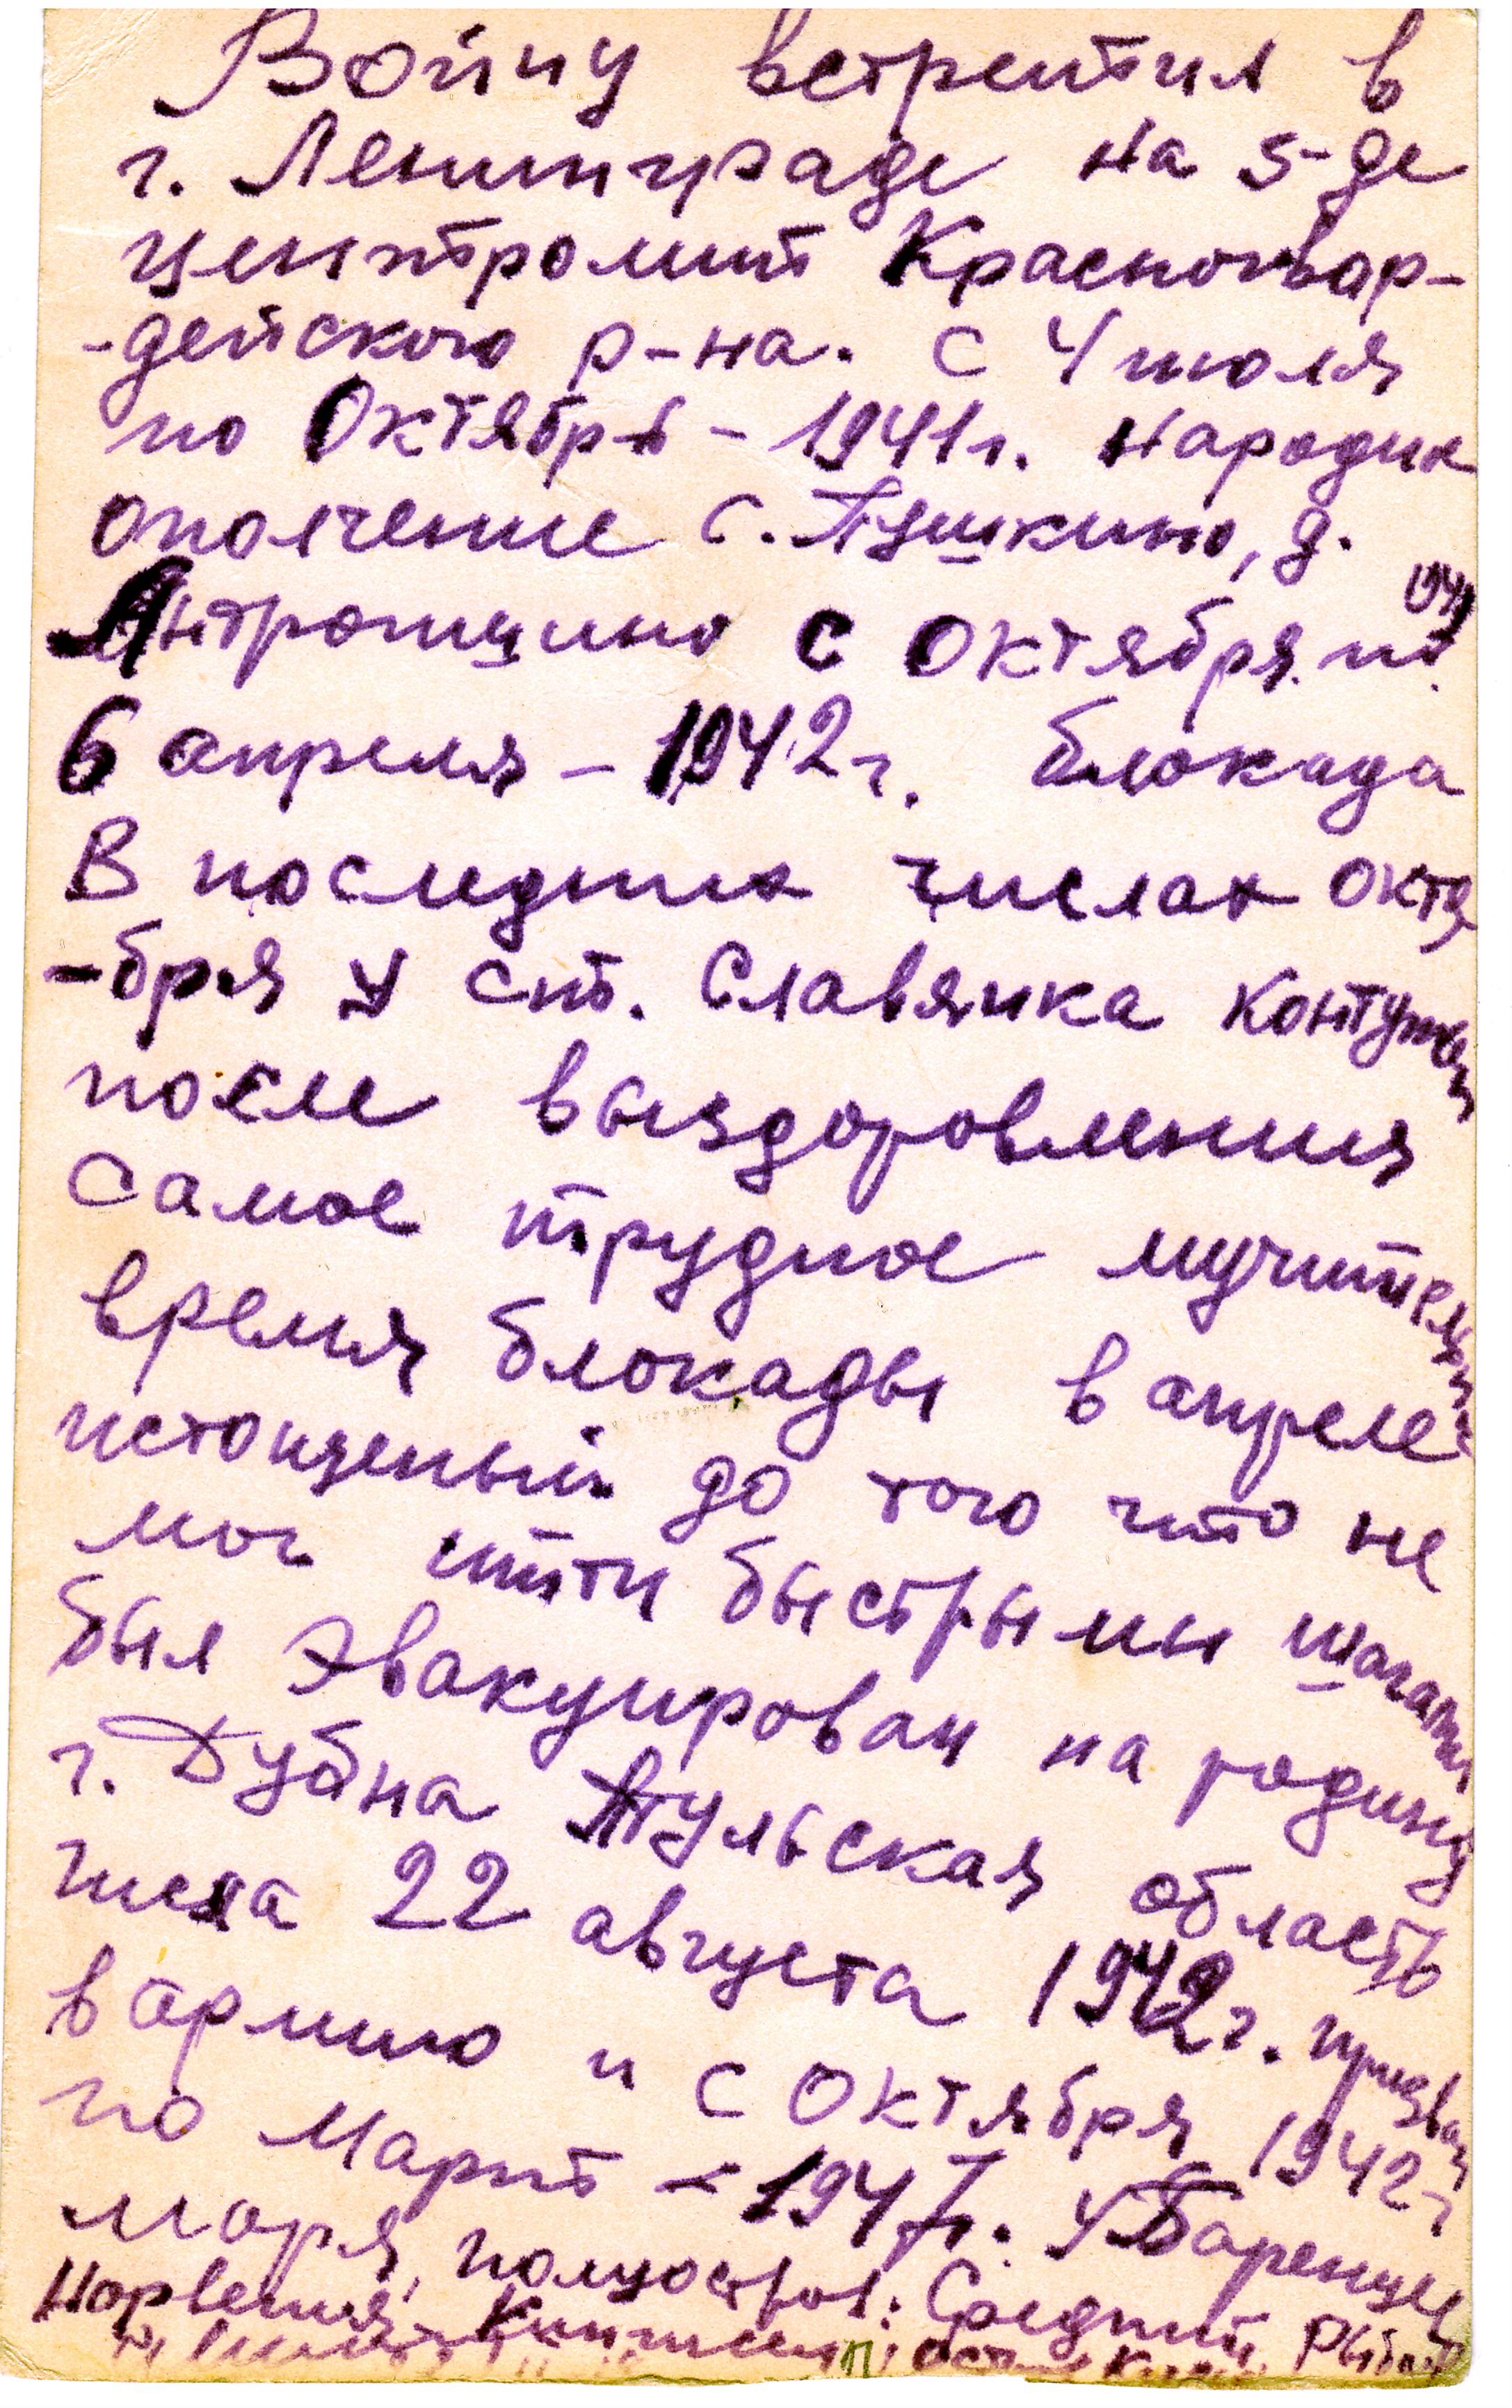 Войну встретил в
г. Ленинграде на з-де
центролит Красногвар-
-дейского р-на. С 4 июля
по Октябрь - 1941 г. народн
ополчение с. Пушкино, д.
Антропшино с октября 1941 по
6 апреля - 1942 г. блокада
В последних числах октя
-бря у ст. Славянка контужен
после выздоровления
самое трудное мучительное
время блокады в апреле
истощеный до того что не
мог итти быстрыми шагами
был эвакуирован на родину
г. Дубна Тульская область
числа 22 августа 1942 г. призван
в армию и с Октября 1942 г
по Март - 1947 г. у Баренцев
моря, полуостров: Средний, Рыбач
Норвегия, Киркинес